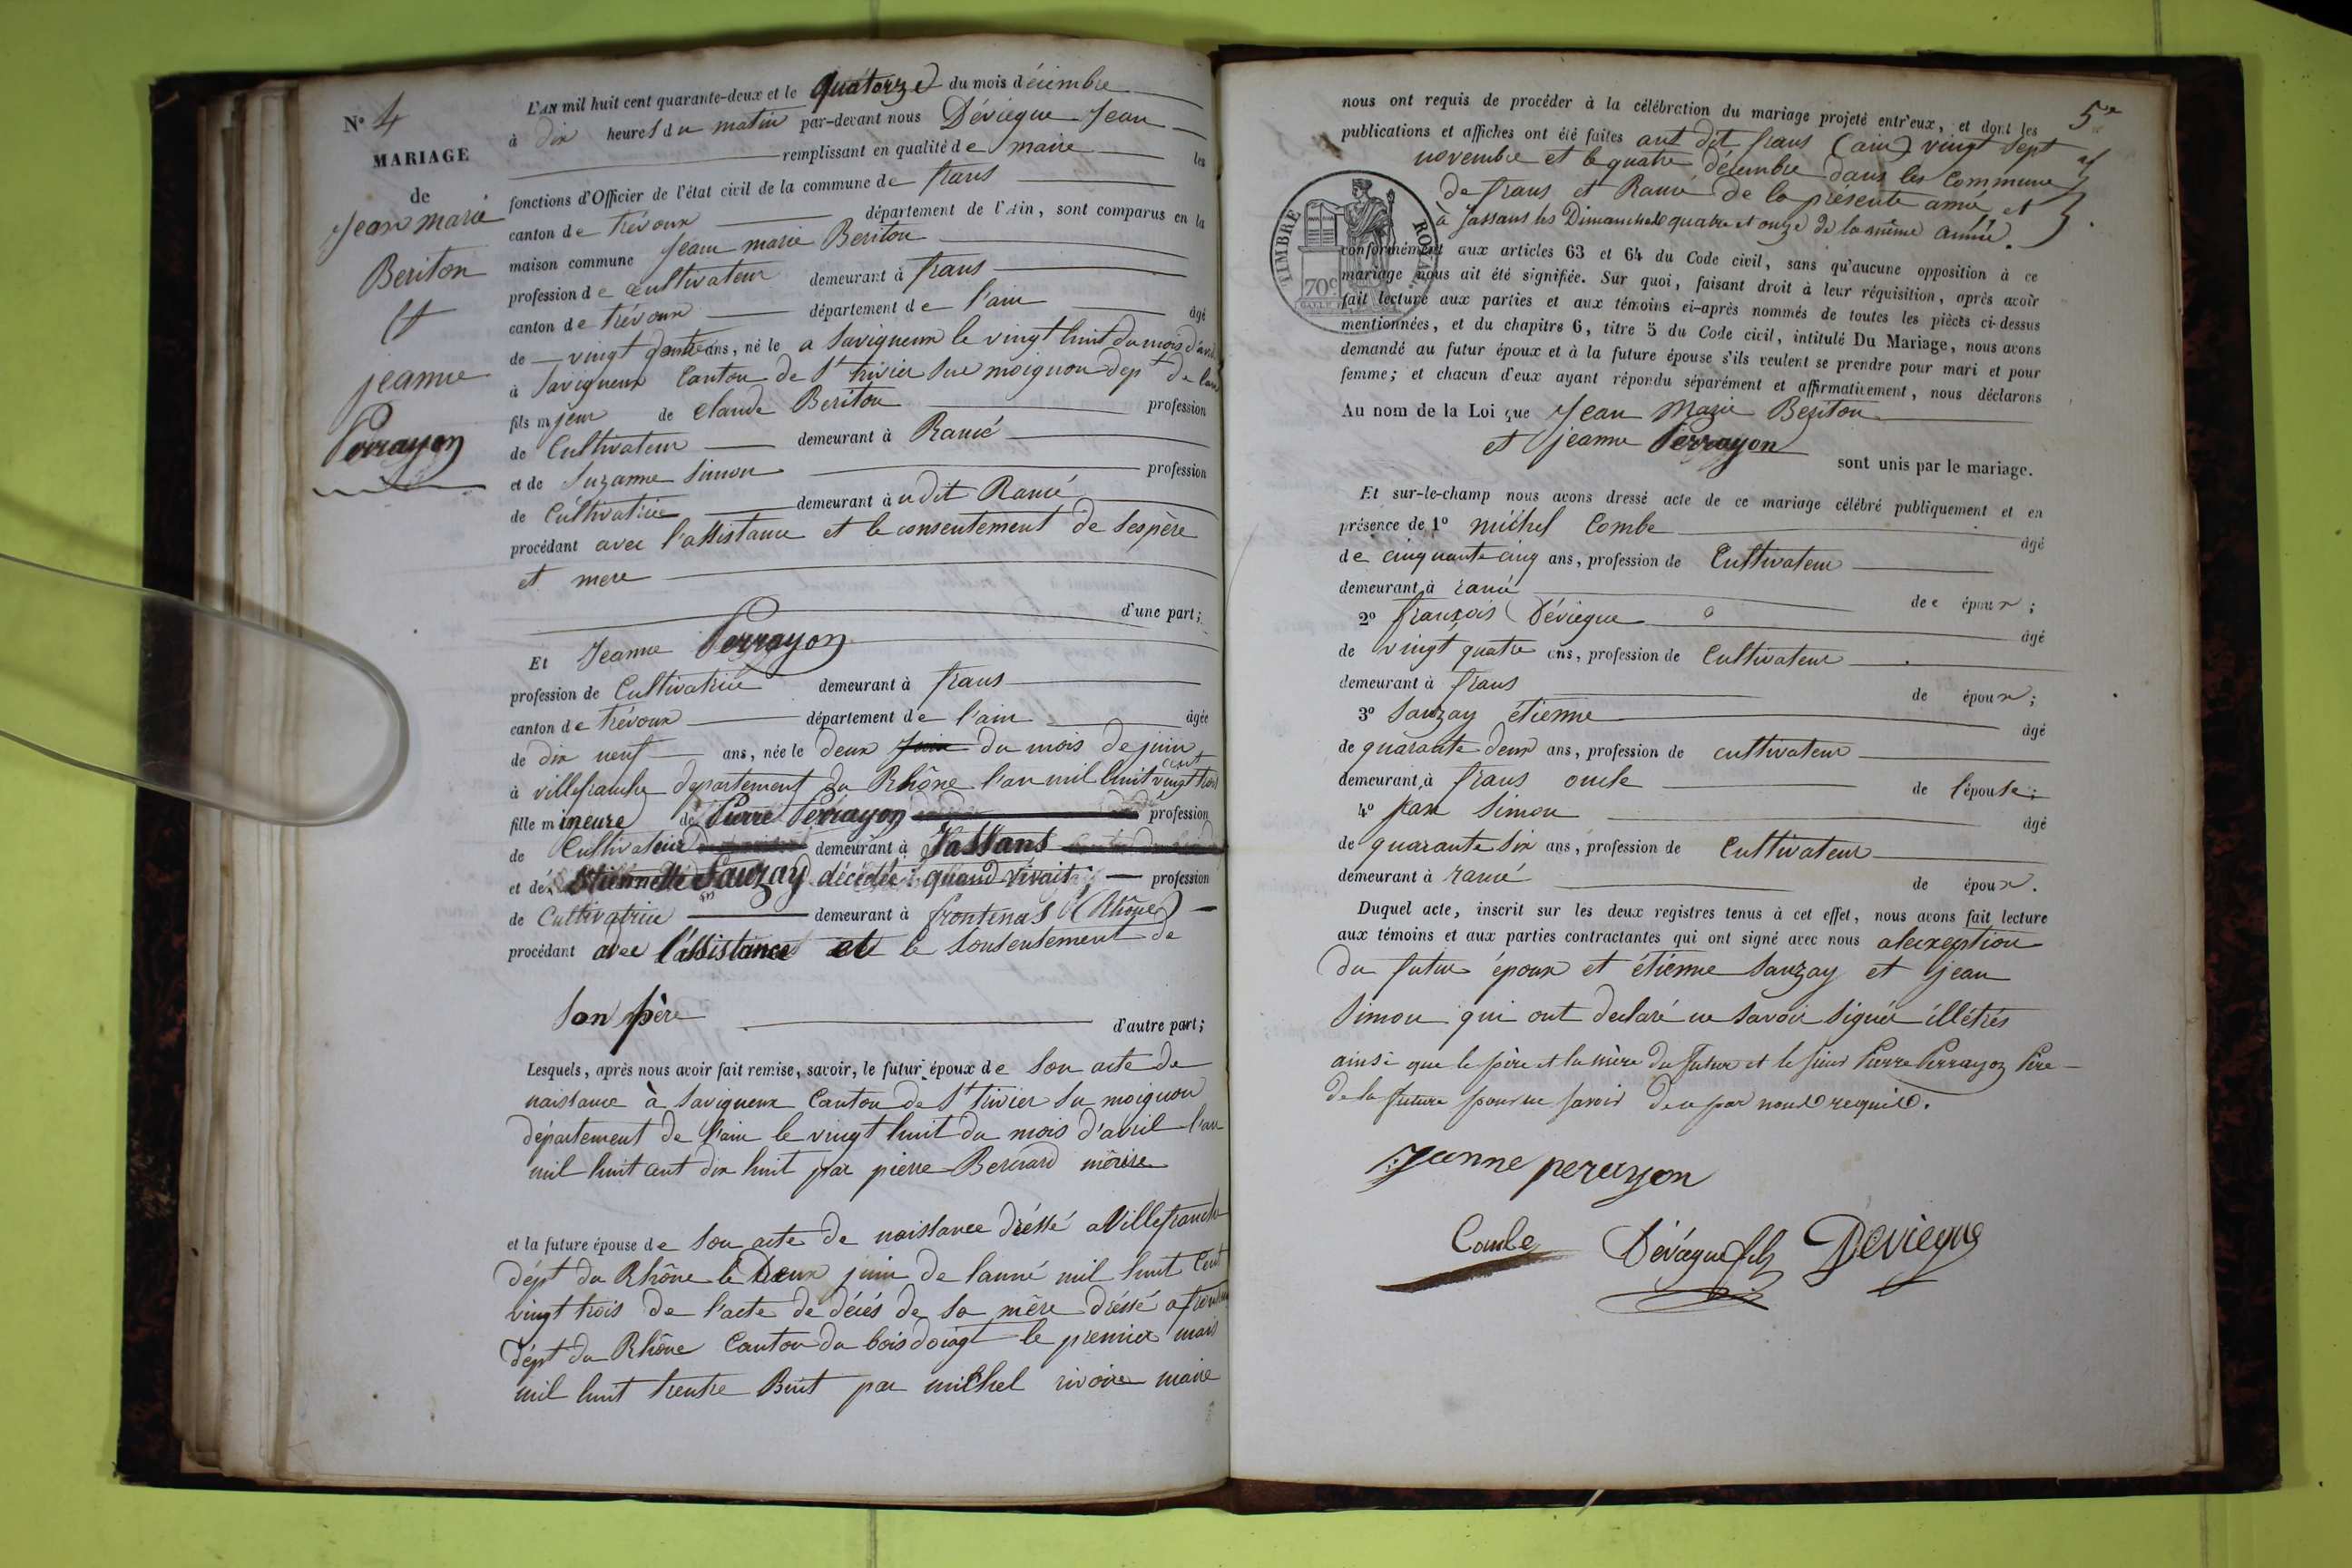 N° 4
MARIAGE
de
Jean marie
Beriton
Et
jeanne
Perrayon
L'AN mil huit cent quarante-deux et le quatorze du mois décembre
à dix heures du matin par-devant nous Déviegue Jean
remplissant en qualité de maire les
fonctions d'Officier de l'état civil de la commune de frans
canton de trévoux département de l'Ain, sont comparus en la
maison commune Jean marie Beriton
profession de cultivateur demeurant à frans
canton de trévoux département de l'ain âgé
de vingt quatre ans, né le a Savigneux le vingt huit du mois d'avril
à Savigneux Canton de St trivier sur moignon dept de l'ain
fils majeur de claude Beriton profession
de Cultivateur demeurant à Rancé
et de Suzanne Simon profession
de Cultivatrice demeurant audit Rancé
procédant avec l'assistance et le consentement de ses père
et mere
d'une part;
Et Jeanne Perrayon
profession de Cultivatrice demeurant à frans
canton de trévoux département de l'ain âgée
de dix neuf ans, née le deux juin du mois de juin
à villefranche departement du Rhône l'an mil huit cent vingt trois
fille mineure de Pierre Perrayon profession
de Cultivateur demeurant à Jassans
et de Etiennette Sauzay décédée: quand vivait; profession
de Cultivatrice demeurant à frontenas (Rhône)
procédant avec l'assistance et le consentement de
son père
d'autre part;
Lesquels, après nous avoir fait remise, savoir, le futur époux de Son acte de
naissance à Savigneux Canton de St trivier Su moignon
département de l'ain le vingt huit du mois d'avril l'an
mil huit cent dix huit par pierre Berérard
et la future épouse de Son acte de naissance dréssé a Villefranche
dépt du Rhône le Deux juin de lanné mil huit Cent
vingt trois de l'acte de décés de sa mère dréssé a
dépt du Rhône Canton du bois doiagt le premier mars
mil huit trentre Buit par milhel rivoire maire
5e
nous ont requis de procéder à la célébration du mariage projeté entr'eux, et dont les
publications et affiches ont été faites aut dit frans (ain) vingt sept
novembre et le quatre décembre dans les Commune
de frans et Rancé de la présente anné et
à Jassans les Dimanches quatre et onze de la même année.
TIMBRE ROYAL
70c
conformément aux articles 63 et 64 du Code civil, sans qu'aucune opposition à ce
mariage nous ait été signifiée. Sur quoi, faisant droit à leur réquisition, après avoir
fait lecture aux parties et aux témoins ci-après nommés de toutes les pièces ci-dessus
mentionnées, et du chapitre 6, titre 5 du Code civil, intitulé Du Mariage, nous avons
demandé au futur époux et à la future épouse s'ils veulent se prendre pour mari et pour
femme; et chacun d'eux ayant répondu séparément et affirmativement, nous déclarons
Au nom de la Loi que Jean Marie Beriton
et jeanne Perrayon
sont unis par le mariage.
Et sur-le-champ nous avons dressé acte de ce mariage célébré publiquement et en
présence de 1° michel Combe âgé
de cinquante cinq ans, profession de Cultivateur
demeurant à rancé de époux;
2° françois Déviegue âgé
de vingt quatre ans, profession de Cultivateur
demeurant à frans de époux;
3° Sauzay étienne âgé
de quarante deux ans, profession de cultivateur
demeurant à frans oncle de l'épouse;
4° jean Simon âgé
de quarante six ans, profession de Cultivateur
demeurant à rancé de époux.
Duquel acte, inscrit sur les deux registres tenus à cet effet, nous avons fait lecture
aux témoins et aux parties contractantes qui ont signé avec nous alexeption
du futur époux et étienne Sauzay et jean
Simon qui ont declaré ne savoir signér illétrés
ainsi que le père et la mère du futur et le sieur Pierre Perrayon Père
de la future pour ne savoir de ce par nous requis.
Janne perayon
Combe Déviegue fils Deviegue